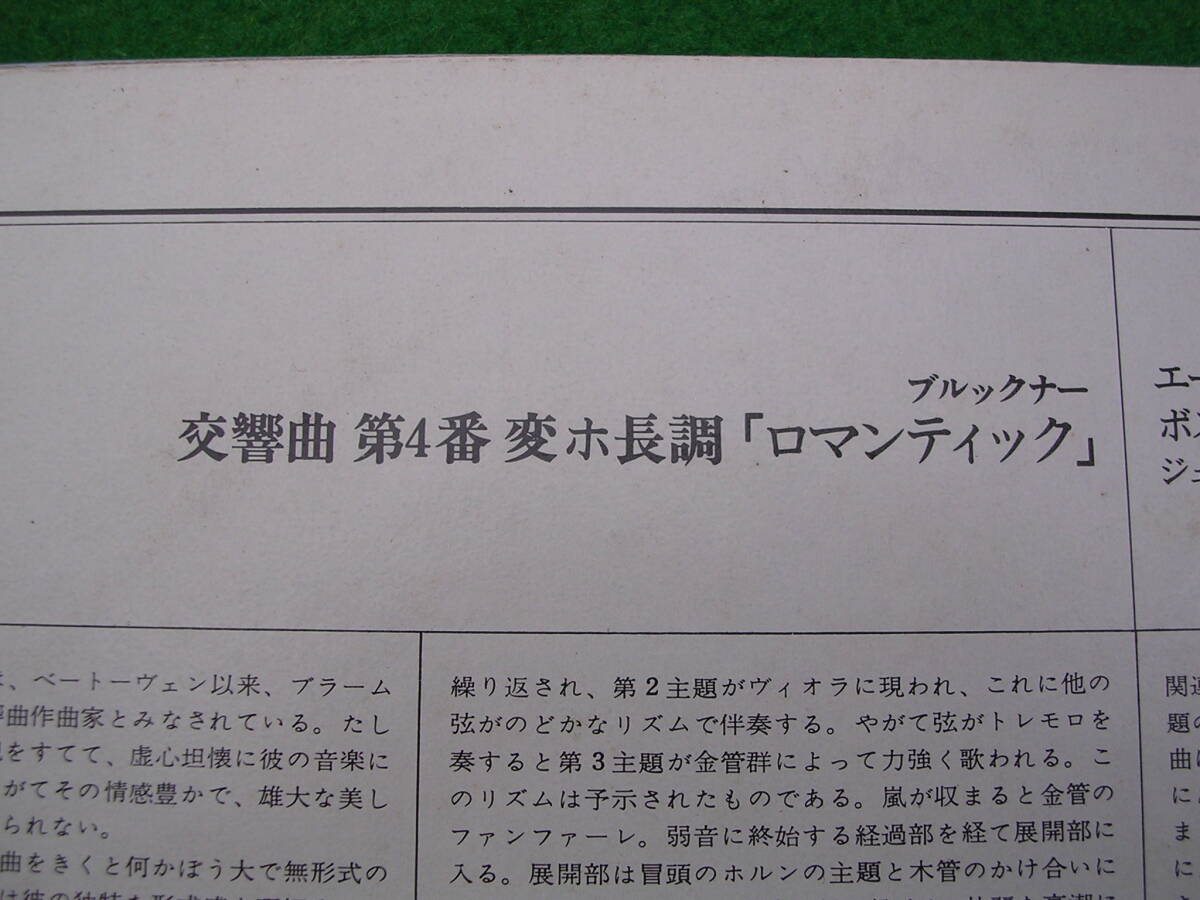 ブルックナー
交響曲 第4番 変ホ長調「ロマンティック」
エー
ボス
ジュ
、ベートーヴェン以来、ブラーム
響曲作曲家とみなされている。たし
をすてて、虚心坦懐に彼の音楽に
がてその情感豊かで、雄大な美し
られない。
曲をきくと何かぼう大で無形式の
繰り返され、第2主題がヴィオラに現われ、これに他の
弦がのどかなリズムで伴奏する。やがて弦がトレモロを
奏すると第3主題が金管群によって力強く歌われる。こ
のリズムは予示されたものである。嵐が収まると金管の
ファンファーレ。弱音に終始する経過部を経て展開部に
入る。展開部は冒頭のホルンの主題と木管のかけ合いに
関連
題の
曲に
に
ま
に